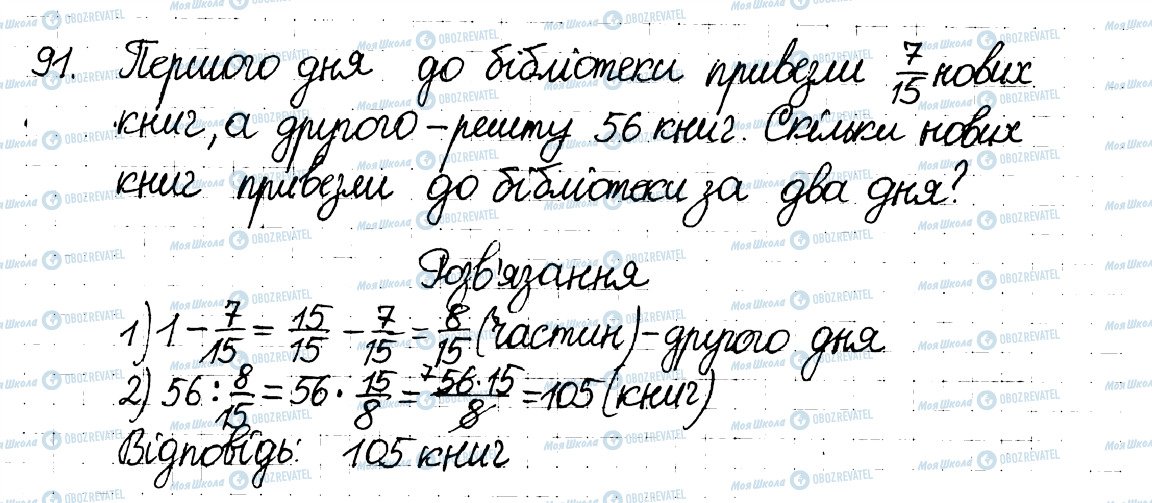 91. Першого дня до бібліотеки привезли 7/15 нових
книг, а другого – решту 56 книг. Скільки нових
книг привезли до бібліотеки за два дня?
Розв'язання
1) 1 - 7/15 = 15/15 - 7/15 = 8/15 (частин) - другого дня
2) 56 : 8/15 = 56 · 15/8 = ⁷56·15/8 = 105 (книг)
Відповідь: 105 книг